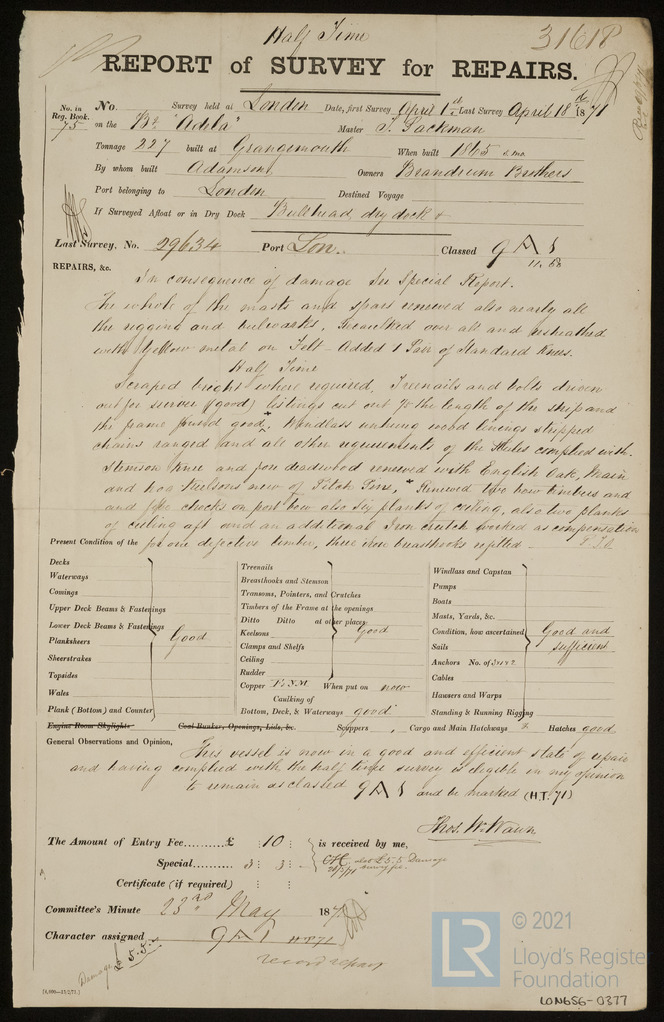 Half Time
31618
REPORT of SURVEY for REPAIRS.
No. in Reg. Book.
75
No. Survey held at London Date, first Survey April 1st Last Survey April 18 1871
on the Bk "Adela" Master T. Sackman
Tonnage 227 built at Grangemouth When built 1865
By whom built Adamson Owners Brandrum Brothers
Port belonging to London Destined Voyage
If Surveyed Afloat or in Dry Dock Bullhead dry dock +
Last Survey, No. 29634 Port Lon. Classed 9 A 1
11.68
REPAIRS, &c.
In consequence of damage See Special Report.
The whole of the masts and spars renewed also nearly all
the rigging and bulwarks, Recaulked over all and resheathed
with Yellow metal on Felt - Added 1 Pair of Standard Knees.
Half Time
Scraped bright where required, Treenails and bolts driven
out for survey (good) listings cut out to the length of the ship and
the frame found good, Windlass unhung wood linings stripped
chains ranged and all other requirements of the Rules complied with.
Stemson Knee and fore deadwood renewed with English Oak, Main
and hog Keelsons new of Pitch Pine, * Renewed two bow timbers and
and chocks on port bow also planks of ceiling, also two planks
of ceiling aft and an additional Iron crutch worked as compensation
for one defective timber, three iron breasthooks refitted - P.T.O
Present Condition of the
Decks
Waterways
Comings
Upper Deck Beams & Fastenings
Lower Deck Beams & Fastenings
Planksheers
Sheerstrakes
Topsides
Wales
Plank (Bottom) and Counter
Good
Treenails
Breasthooks and Stemson
Transoms, Pointers, and Crutches
Timbers of the Frame at the openings
Ditto Ditto at other places
Keelsons
Clamps and Shelfs
Ceiling
Rudder
Good
Copper When put on now
Caulking of
Bottom, Deck, & Waterways good
Windlass and Capstan
Pumps
Boats
Masts, Yards, &c.
Condition, how ascertained
Sails
Anchors No. of
Cables
Hawsers and Warps
Standing & Running Rigging
Good and sufficient
Engine Room Skylights Coal Bunker, Openings, Lids, &c. Scuppers, Cargo and Main Hatchways + Hatches good
General Observations and Opinion,
This vessel is now in a good and efficient state of repair
and having complied with the half time survey is eligible in my opinion
to remain as classed 9 A 1 and be marked (H.T. 71)
Thos. W. Wawn
The Amount of Entry Fee..........£ : 10 : is received by me,
Special.......... 3 : 3 :
also £5.5 Damage
Certificate (if required) : :
Committee's Minute 23rd May 1871
Character assigned 9 A 1 H.T. 71
record repairs
Damage £5.5.
[4,000—13/2/71.]
LR
© 2021
Lloyd's Register
Foundation
LON656-0377